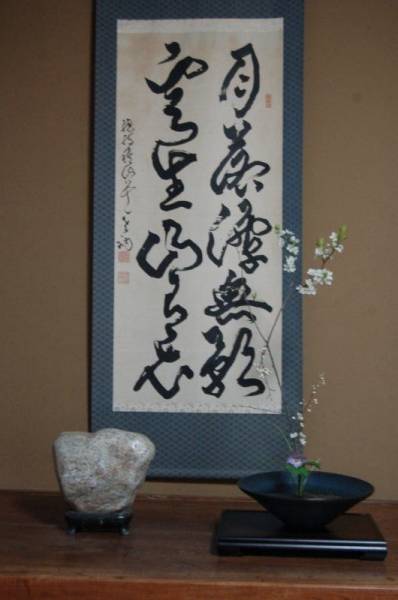 月落潭無影
雲生山有衣